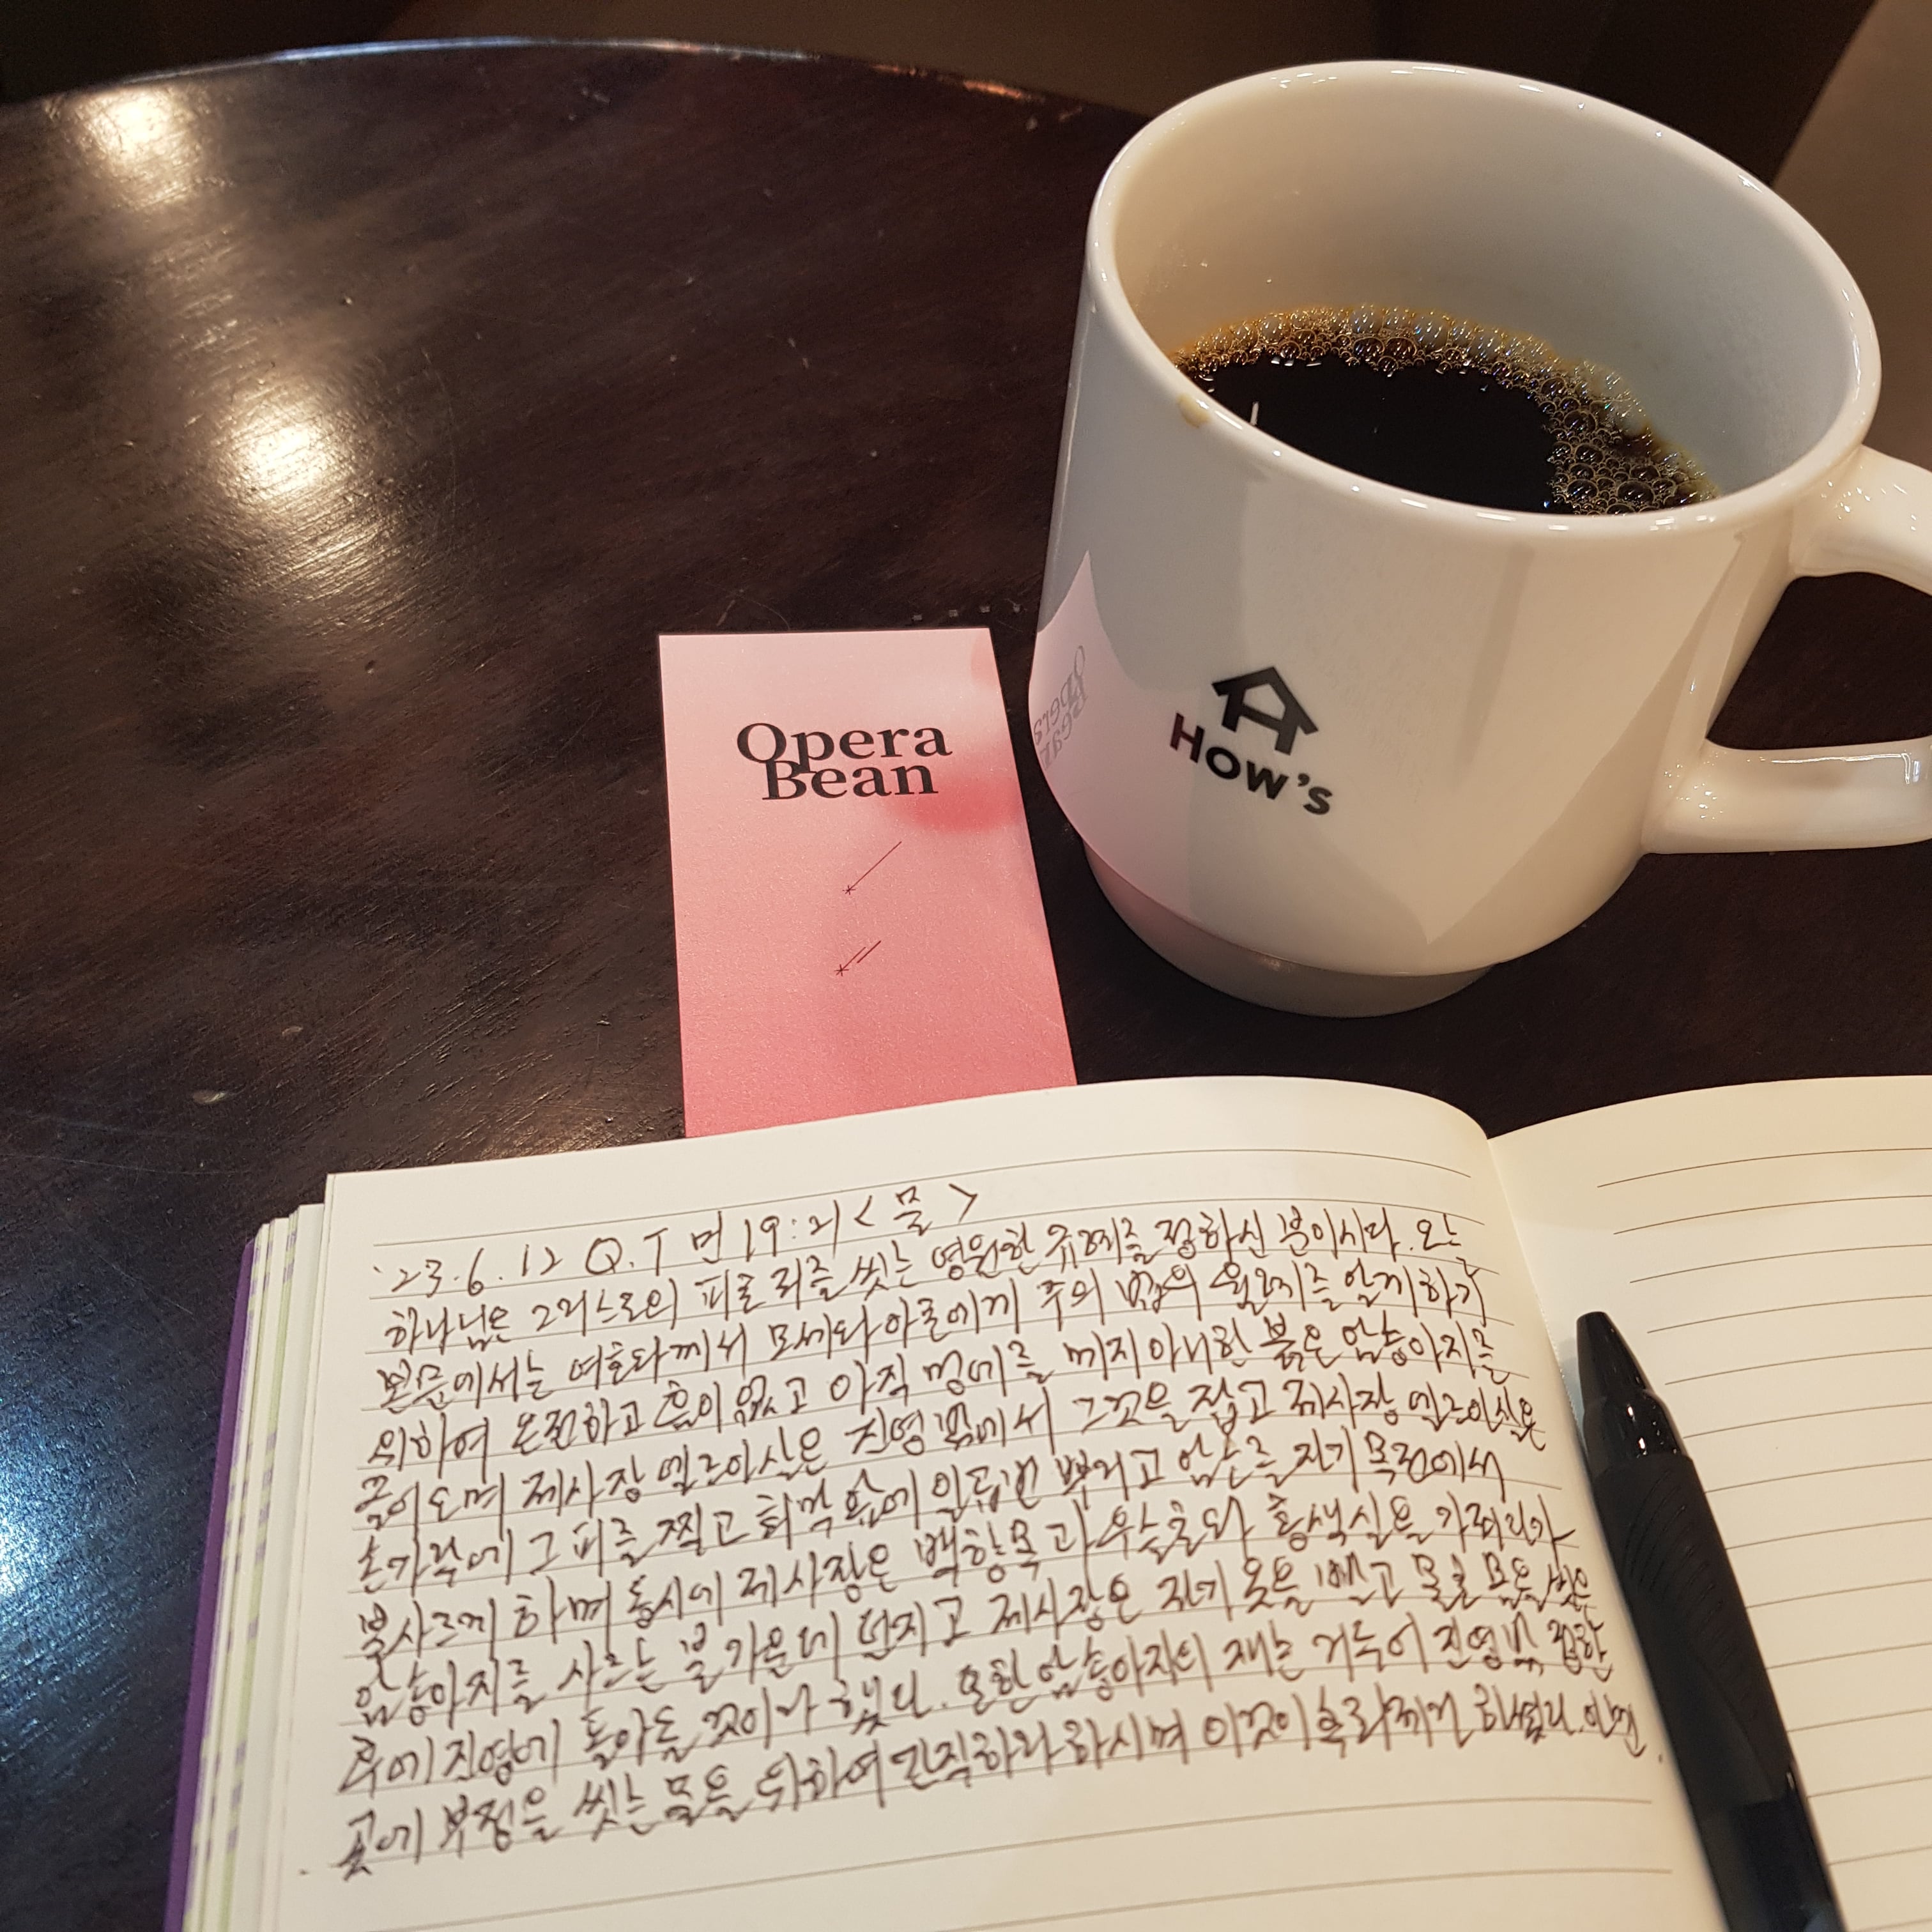 Opera
Bean
How's
'23.6.12 Q.T 민 19:21 <물>
하나님은 그리스도의 피로 죄를 씻는 영원한 규례를 정하신 분이시다. 오늘
본문에서는 여호와께서 모세와 아론에게 주의 법의 율례를 알게 하기
위하여 온전하고 흠이 없고 아직 멍에를 메지 아니한 붉은 암송아지를
끌어오며 제사장 엘르아살은 진영 밖에서 그것을 잡고 제사장 엘르아살은
손가락에 그 피를 찍고 회막 앞에 일곱번 뿌리고 암소를 자기 목전에서
불사르게 하며 동시에 제사장은 백향목과 우슬초와 홍색실을 가져다가
암송아지를 사르는 불 가운데 던지고 제사장은 자기 옷을 빨고 물로 몸을 씻은
후에 진영에 돌아올 것이라 했다. 또한 암송아지의 재는 거두어 진영 밖 정한
곳에 부정을 씻는 물을 위하여 간직하라 하시며 이것이 속죄제라 하셨다. 아멘.